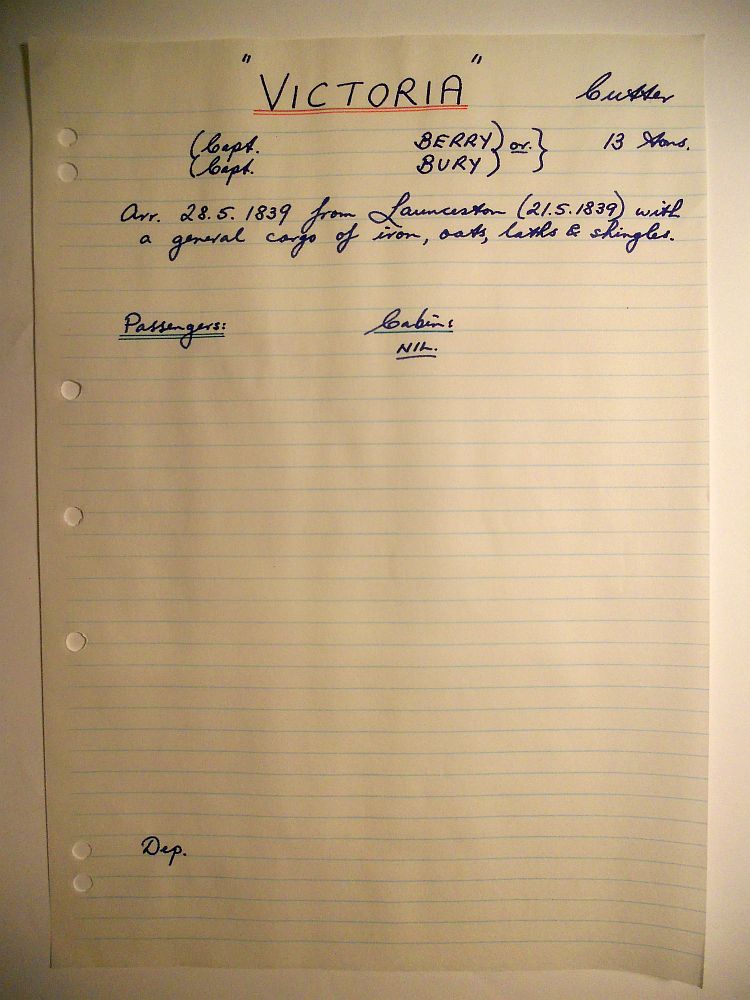 "VICTORIA" Cutter
(Capt. BERRY) or } 13 Tons.
(Capt. BURY)
Arr. 28.5.1839 from Launceston (21.5.1839) with
a general cargo of iron, oats, laths & shingles.
Passengers: Cabin:
NIL.
Dep.